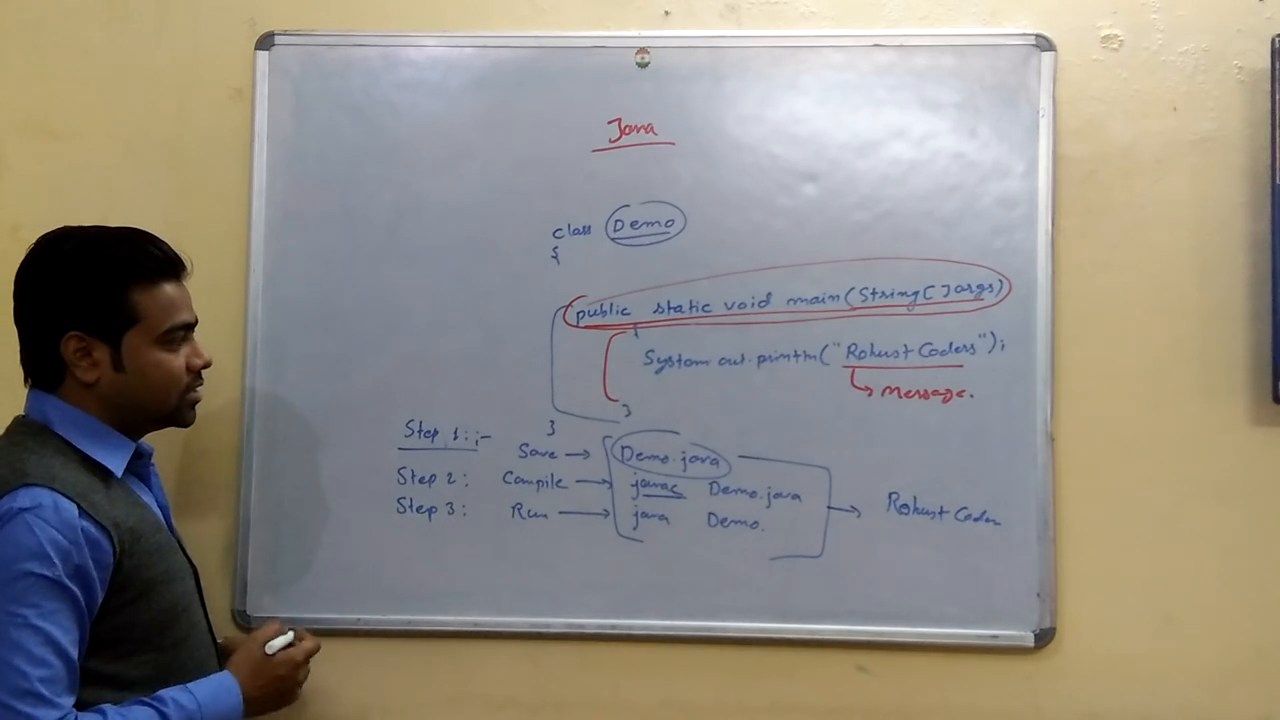 Java
class Demo
{
public static void main(String[]args)
{
System.out.println("Robust Coders");
→ Message.
}
}
Step 1:;-
Save → Demo.java
Step 2: Compile → javac Demo.java
Step 3: Run → java Demo.
→ Robust Coder